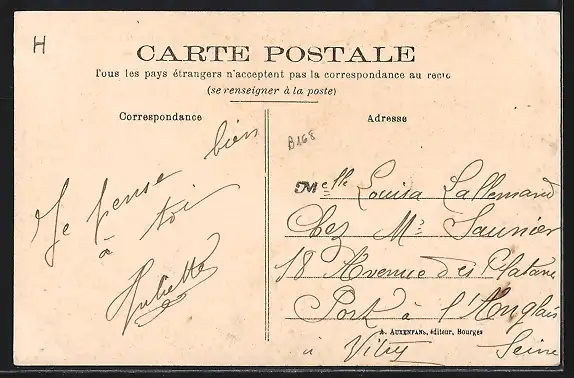 H
CARTE POSTALE
Tous les pays étrangers n'acceptent pas la correspondance au recto
(se renseigner à la poste)
Correspondance
Je pense bien
à toi
Juliette
Adresse
B168
Melle Louisa Lallemand
Chez Mr Saunier
18 Avenue des Platane
Port à l'Anglais
A. AUXENFANS, éditeur, Bourges
à Vitry Seine